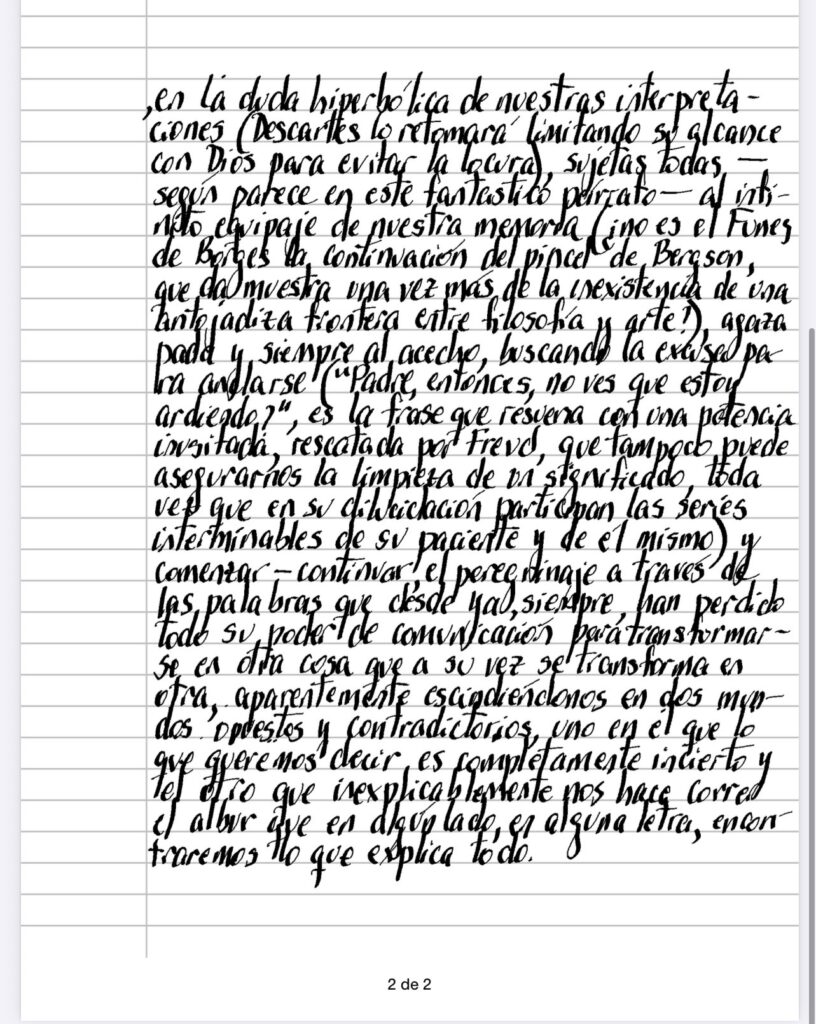 , en la duda hiperbólica de nuestras interpreta-
ciones (Descartes lo retomará limitando su alcance
con Dios para evitar la locura), sujetas todas —
según parece en este fantástico — al infi-
nito equipaje de nuestra memoria (¿no es el Funes
de Borges la continuación del pincel de Bergson,
que da muestra una vez más de la inexistencia de una
antojadiza frontera entre filosofía y arte?), agaza
pada y siempre al acecho, buscando la excusa pa
ra anclarse ("Padre, entonces, no ves que estoy
ardiendo?", es la frase que resuena con una potencia
inusitada, rescatada por Freud, que tampoco puede
asegurarnos la limpieza de un significado, toda
vez que en su dilucidación participan las series
interminables de su paciente y de él mismo) y
comenzar - continuar el peregrinaje a través de
las palabras que desde ya, siempre, han perdido
todo su poder de comunicación para transformar-
se en otra cosa que a su vez se transforma en
otra, aparentemente escindiéndonos en dos mun-
dos opuestos y contradictorios, uno en el que lo
que queremos decir es completamente incierto y
el otro que inexplicablemente nos hace correr
el albur que en algún lado, en alguna letra, encon-
traremos lo que explica todo.
2 de 2